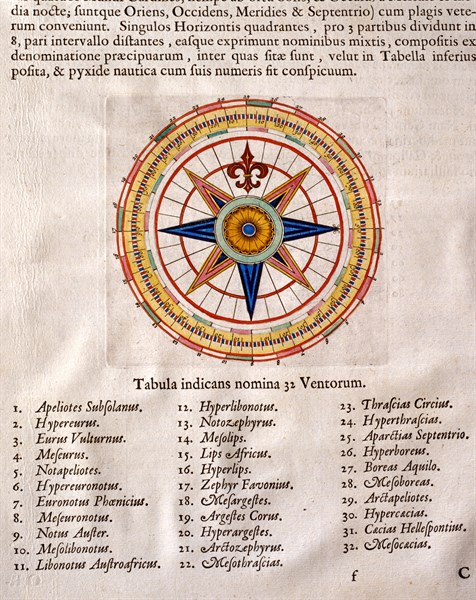 dia nocte; ſuntque Oriens, Occidens, Meridies & Septentrio) cum plagis vete-
rum conveniunt. Singulos Horizontis quadrantes, pro 3 partibus dividunt in
8, pari intervallo diſtantes, eaſque exprimunt nominibus mixtis, compoſitis ex
denominatione præcipuarum, inter quas ſitæ ſunt, velut in Tabella inferius
poſita, & pyxide nautica cum ſuis numeris fit conſpicuum.
Tabula indicans nomina 32 Ventorum.
1. Apeliotes Subſolanus.
2. Hypereurus.
3. Eurus Vulturnus.
4. Meſeurus.
5. Notapeliotes.
6. Hypereuronotus.
7. Euronotus Phœnicius.
8. Meſeuronotus.
9. Notus Auſter.
10. Meſolibonotus.
11. Libonotus Auſtroafricus.
12. Hyperlibonotus.
13. Notozephyrus.
14. Meſolips.
15. Lips Africus.
16. Hyperlips.
17. Zephyr Favonius.
18. Meſargeſtes.
19. Argeſtes Corus.
20. Hyperargeſtes.
21. Arctozephyrus.
22. Meſothraſcias.
23. Thraſcias Circius.
24. Hyperthraſcias.
25. Aparctias Septentrio.
26. Hyperboreus.
27. Boreas Aquilo.
28. Meſoboreas.
29. Arctapeliotes.
30. Hypercæcias.
31. Cæcias Helleſpontius.
32. Meſocæcias.
f C